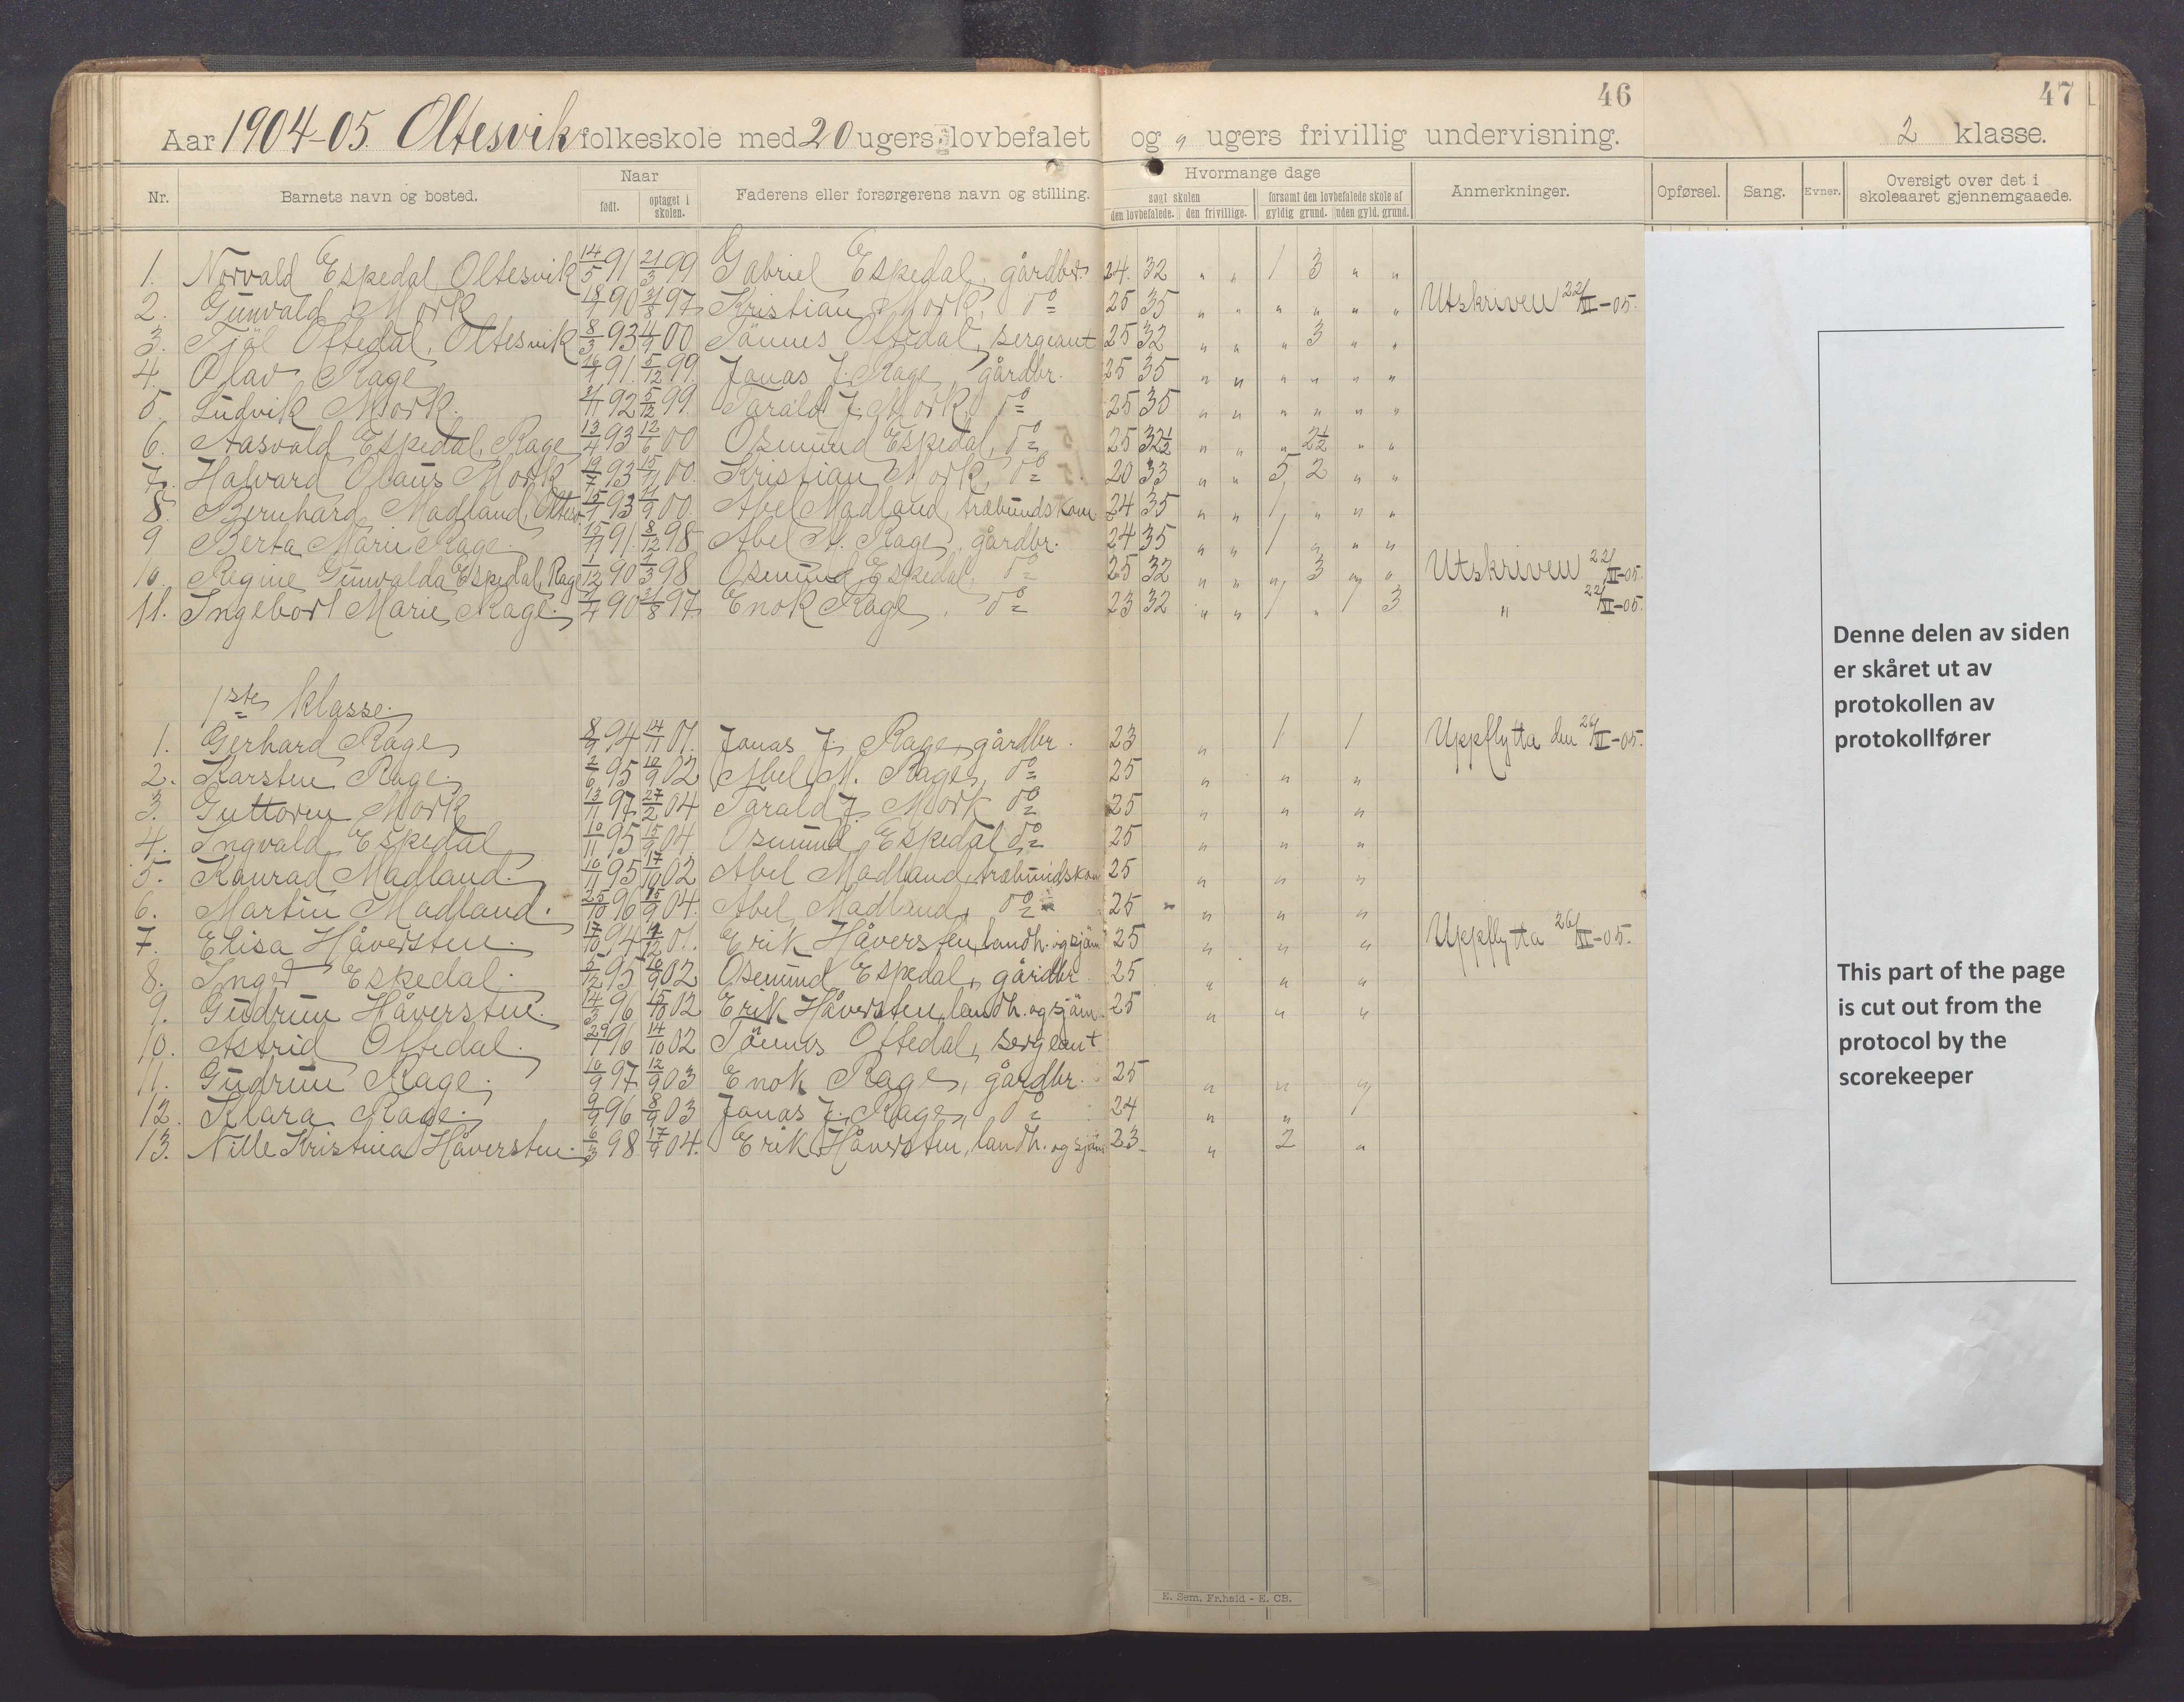 46
47
Aar 1904-05. Oltesvik folkeskole med 20 ugers lovbefalet og " ugers frivillig undervisning. 2 klasse.
Nr. Barnets navn og bosted. Naar født. optaget i skolen. Faderens eller forsørgerens navn og stilling. Hvormange dage søgt skolen den lovbefalede. den frivillige. forsømt den lovbefalede skole af gyldig grund. uden gyld. grund. Anmerkninger. Opførsel. Sang. Evner. Oversigt over det i skoleaaret gjennemgaaede.
1. Norvald Espedal, Oltesvik 14/5 91 21/3 99 Gabriel Espedal, gårdbr. 24. 32 " " 1 3 " "
2. Gunvald Mork 18/1 90 31/8 97 Kristian Mork, do 25 35 " " " " " " Utskriven 22/VI-05.
3. Tjöl Oftedal, Oltesvik 8/3 93 4/4 00 Tönnes Oftedal, sergeant 25 32 " " " 3 " "
4. Olav Rage 16/1 91. 5/12 99. Jonas J. Rage, gårdbr. 25 35 " " " " " "
5. Ludvik Mork. 92 5/12 99. Tarald J. Mork, do 25 35 " " " " " "
6. Aasvald Espedal, Rage 13/4 93 12/6 00 Osmund Espedal, do 25 32½ " " " 2½ " "
7. Halvard Olaus Mork 19/7 93 15/11 00. Kristian Mork, do 20 33 " " 5 2 " "
8. Bernhard Madland, Oltesv. 15/1 93 00. Abel Madland, træbundskom. 24 35 " " 1 " " "
9 Berta Marie Rage. 15/11 91. 8/12 98 Abel M. Rage, gårdbr. 24 35 " " 1 " " "
10. Regine Gunvalda Espedal, Rage 1/12 90 1/3 98 Osmund Espedal, do 25 32 " " " 3 " " Utskriven 22/VI-05.
11. Ingebort Marie Rage. 90 31/8 97. Enok Rage, do 23 32 " " 1 " 1 3 " 22/VI-05.
1ste klasse.
1. Gerhard Rage 8/9 94 14/11 01. Jonas J. Rage, gårdbr. 23 " 1 1 Uppflytta den 26/VI-05.
2. Karsten Rage. 2/6 95 10/9 02 Abel M. Rage, do 25 " " "
3. Guttorm Mork 13/1 97 27/2 04 Tarald J. Mork do 25 " " "
4. Ingvald Espedal 10/11 95 15/9 04. Osmund Espedal do 25 " " "
5. Konrad Madland. 10/11 95 17/10 02 Abel Madland, træbundskom 25 " " "
6. Martin Madland. 25/10 96 15/9 04. Abel Madland, do 25 " " "
7. Elisa Håversten. 17/10 94 12 01. Erik Håversten, landh. og sjöm 25 " " " Uppflytta 26/VI-05.
8. Inger Espedal. 5/12 95 10/9 02 Osmund Espedal, gårdbr 25 " " "
9. Gudrun Håversten. 14/3 96 15/10 02 Erik Håversten, landh. og sjöm. 25 " " "
10. Astrid Oftedal. 29/1 96 14/10 02 Tönnes Oftedal, sergeant
11. Gudrun Rage. 10/9 97 12/9 03 Enok Rage, gårdbr. 25 " " "
12. Klara Rage. 9/9 96 8/9 03 Jonas J. Rage, do 24 " " 1
13. Nille Kristina Håversten. 6/3 98 17/9 04. Erik Håversten, landh. og sjöm 23 " 2 "
Denne delen av siden
er skåret ut av
protokollen av
protokollfører
This part of the page
is cut out from the
protocol by the
scorekeeper
E. Sem. Fr.hald - E. CB.